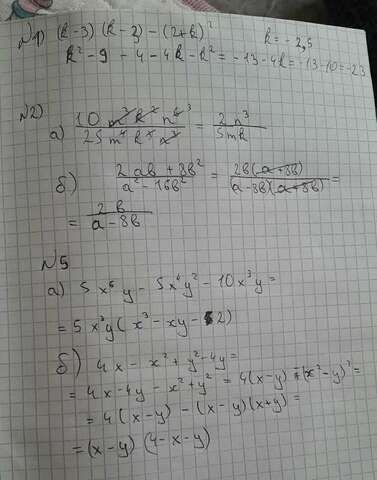 №1) (k-3)(k-3) - (2+k)²   k = -2,5
k² - 9 - 4 - 4k - k² = -13 - 4k = -13 - 10 = -23
№2)
а) 10 m³ k² n⁶ ³ / 25 m⁴ k⁴ n³ = 2 n³ / 5mk
б) 2ab + 8b² / a² - 16b² = 2b(a+8b) / a-8b(a+8b) =
= 2b / a-8b
№5
а) 5x⁶y - 5x⁴y² - 10x³y =
= 5x³y(x³ - xy - 2)
б) 4x - x² + y² - 4y =
= 4x - 4y - x² + y² = 4(x-y) + (x² - y)² =
= 4(x-y) - (x-y)(x+y) =
= (x-y)(4-x-y)